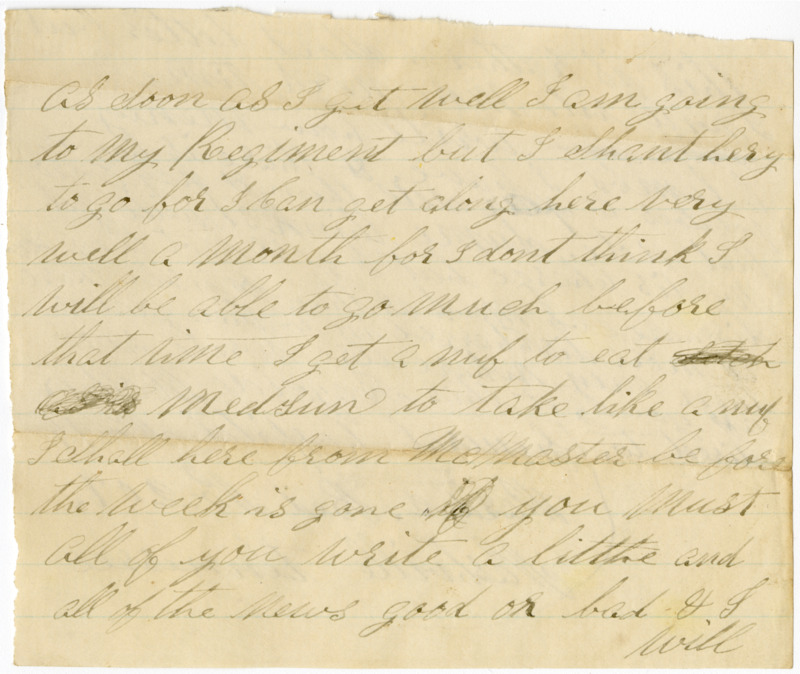 as soon as I get well I am going
to my Regiment but I shant hery
to go for I Can get along here very
well a month for I dont think I
will be able to go much before
that time I get a nuf to eat
medsun to take like a nuf
I shall here from McMaster be fore
the week is gone you must
all of you write a little and
all of the news good or bad & I
will